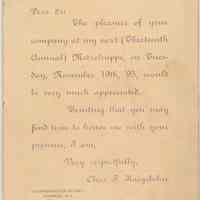 Dear Sir
The pleasure of your
company at my next (Thirteenth
Annual) Metzelsuppe, on Tues-
day, November 19th, '95, would
be very much appreciated.
Trusting that you may
find time to honor me with your
presence, I am,
Very respectfully,
Chas. F.